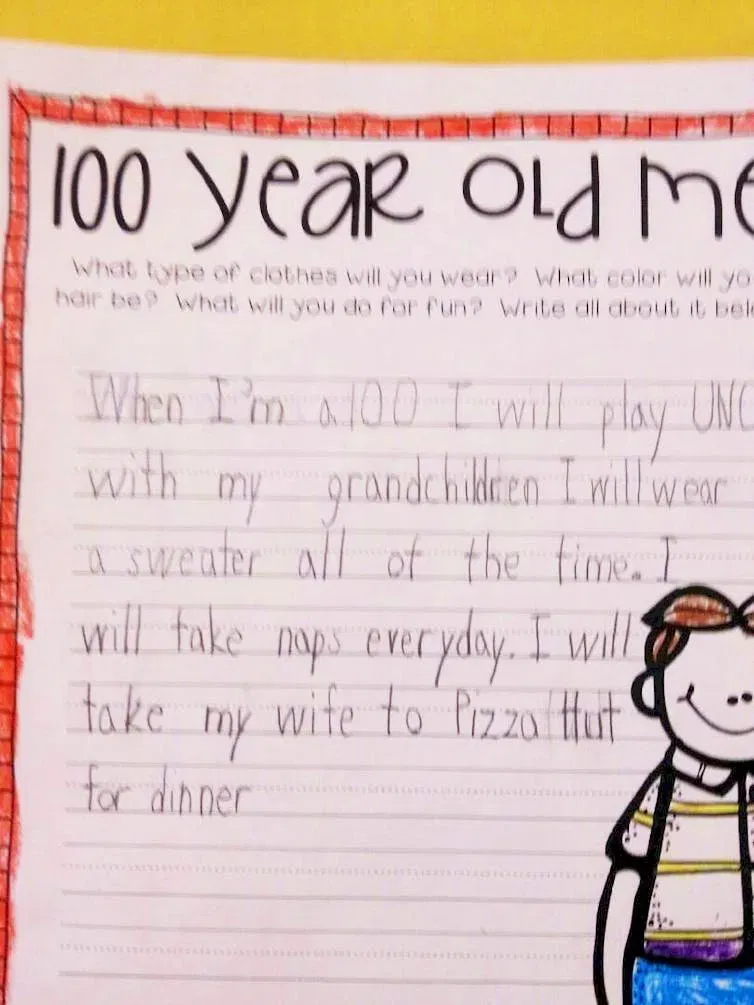 100 year old me
What type of clothes will you wear? What color will yo
hair be? What will you do for fun? Write all about it bel
When I'm a 100 I will play UNO
with my grandchildren I will wear
a sweater all of the time. I
will take naps everyday. I will
take my wife to Pizza Hut
for dinner